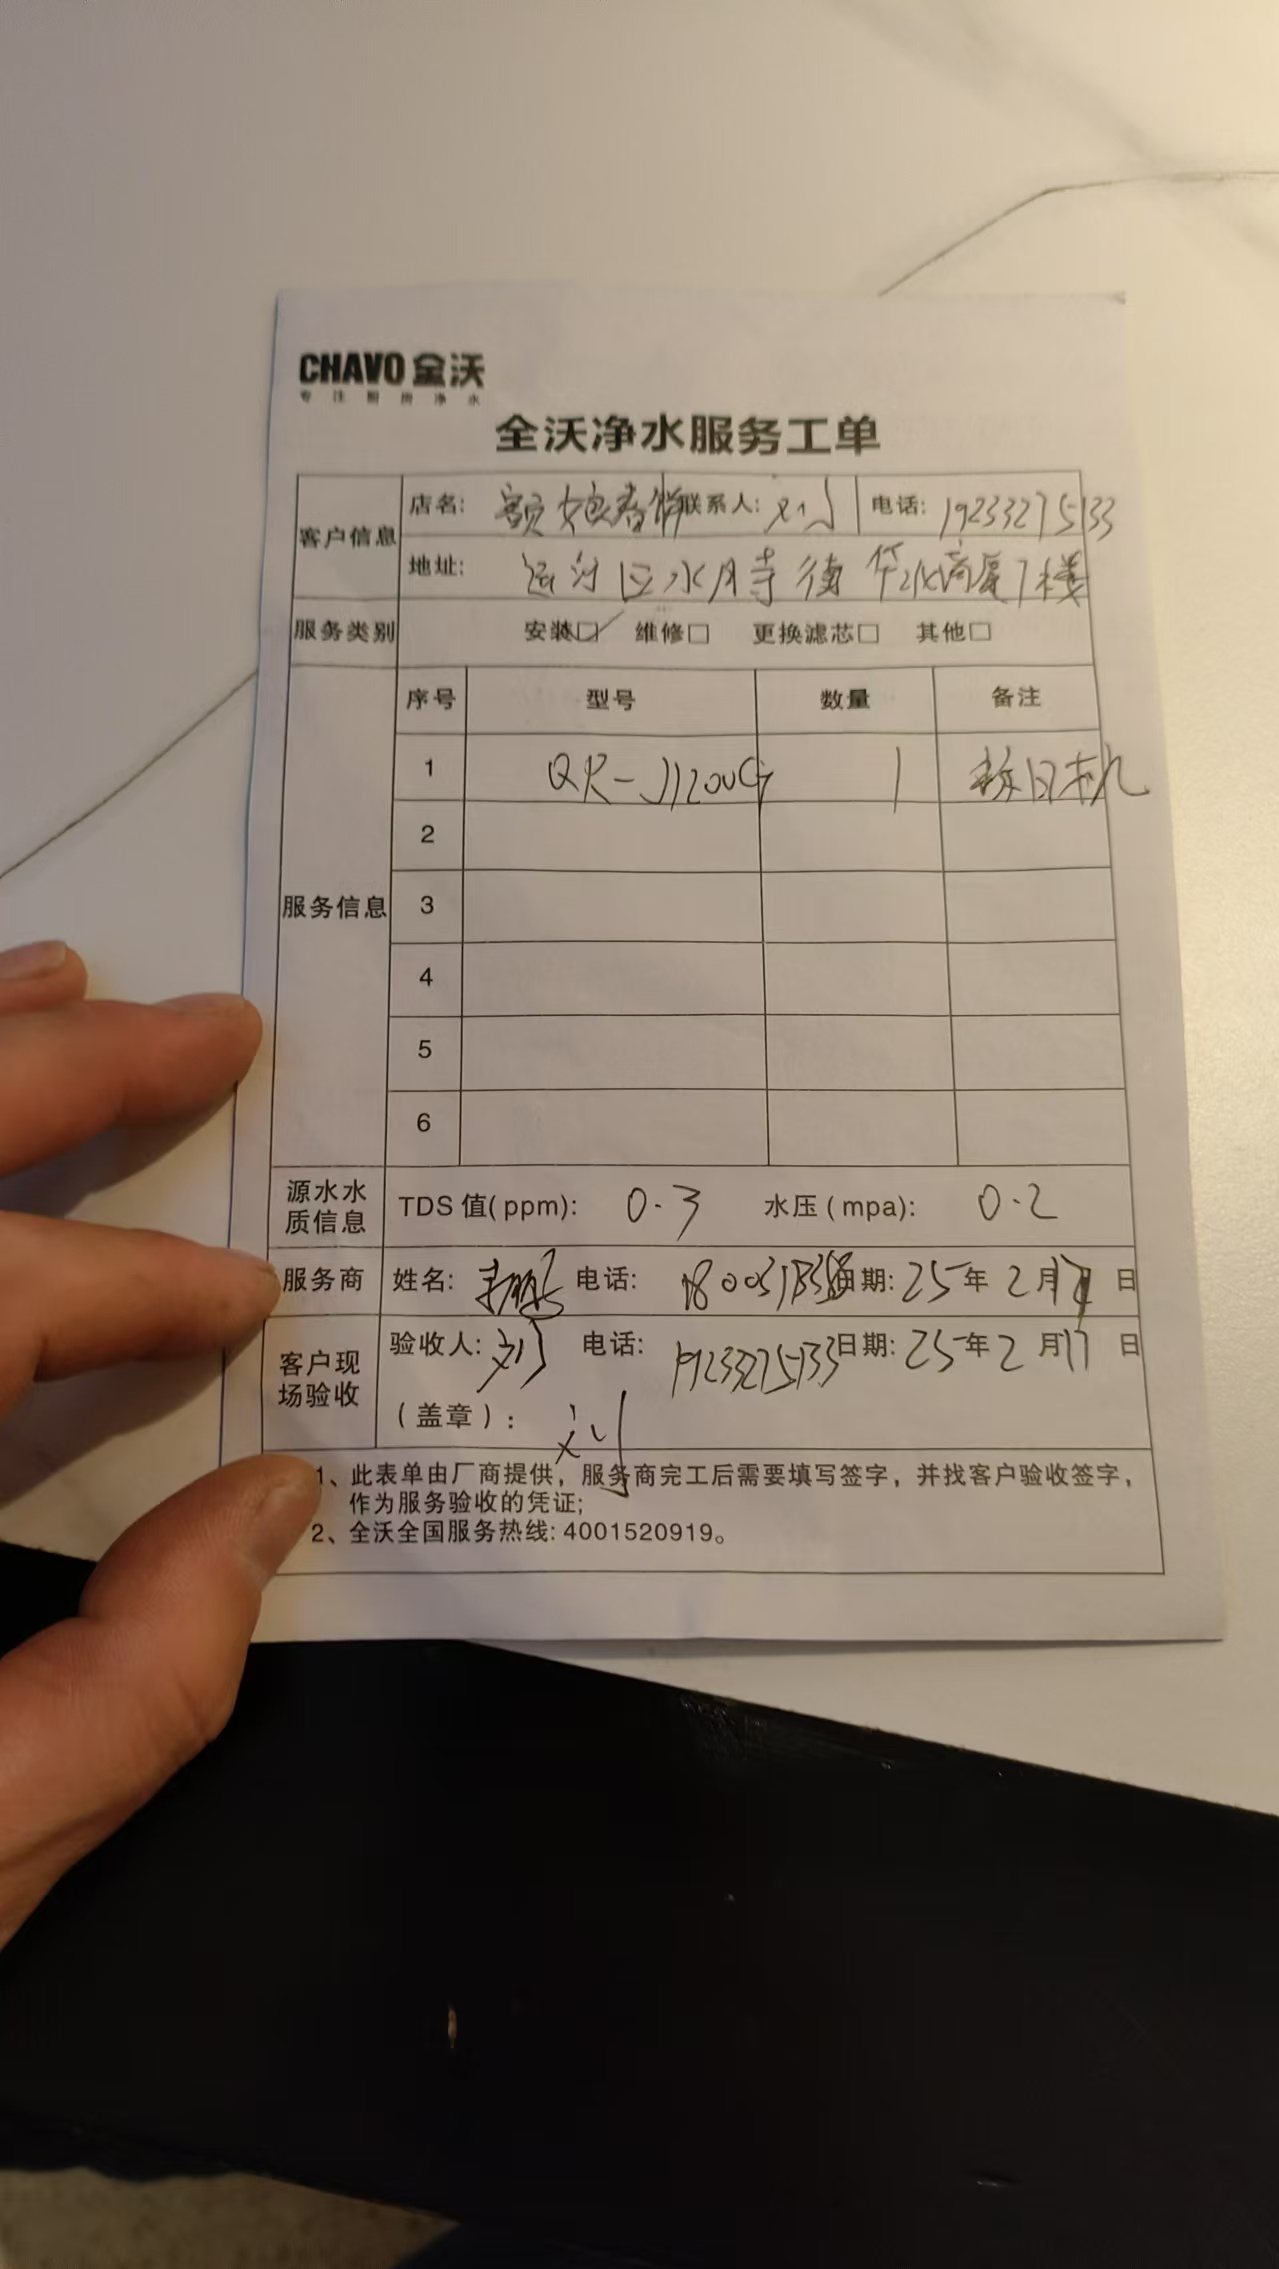 CHAVO 全沃
专注厨房净水
全沃净水服务工单
客户信息 店名: 额娘春饼 联系人: 刘 电话: 19233275133
地址: 运河区水月寺街华水商厦1楼
服务类别 安装☑ 维修□ 更换滤芯□ 其他□
服务信息 序号 型号 数量 备注
1 QR-J1200G 1
2
3
4
5
6
源水水质信息 TDS 值(ppm): 0.3 水压(mpa): 0.2
服务商 姓名: 电话: 日期: 25年2月 日
客户现场验收 验收人: 刘 电话: 19233275133 日期: 25年2月17日
(盖章): 刘
1、此表单由厂商提供，服务商完工后需要填写签字，并找客户验收签字，
作为服务验收的凭证;
2、全沃全国服务热线: 4001520919。